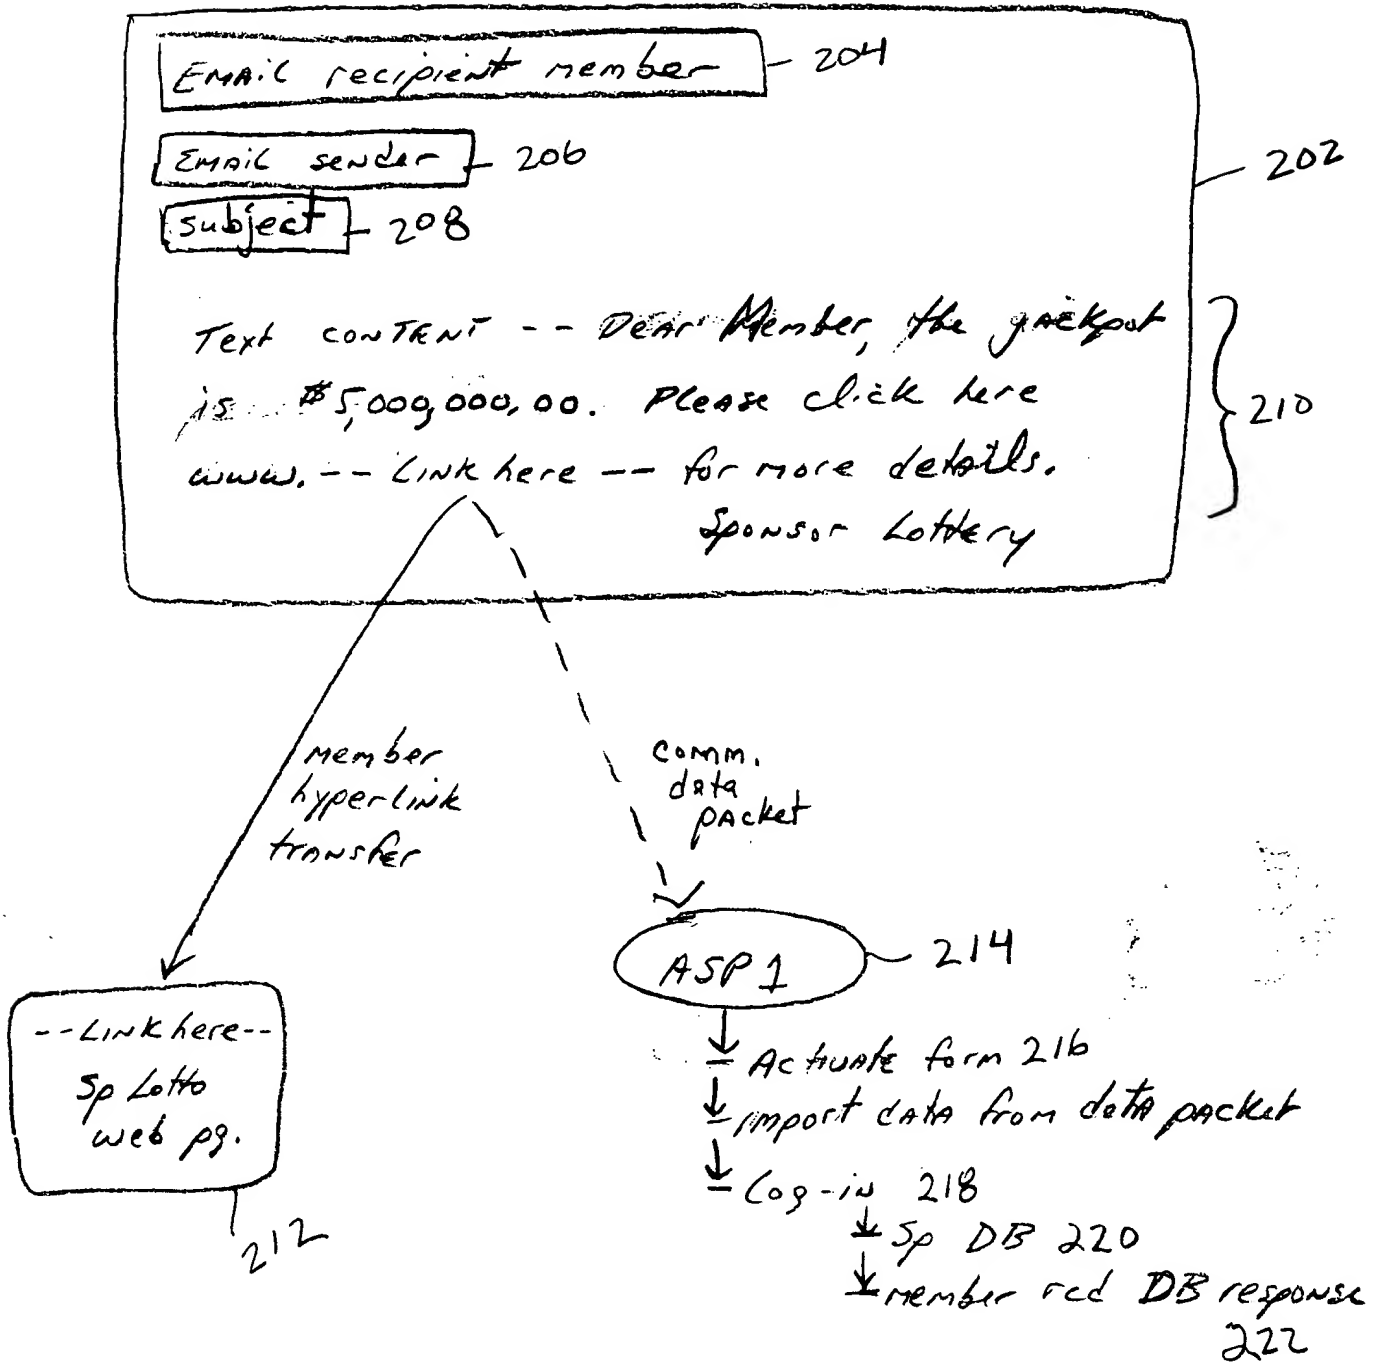 Email recipient member 204
Email sender 206
202
subject 208
Text content -- Dear Member, the jackpot
is $5,000,000,00. Please click here
210
www. -- Link here -- for more details.
Sponsor Lottery
member
hyperlink
transfer
comm.
data
packet
ASP 1 214
--Link here--
Sp Lotto
web pg.
212
Activate form 216
import data from data packet
Log-in 218
Sp DB 220
member rcd DB response
222